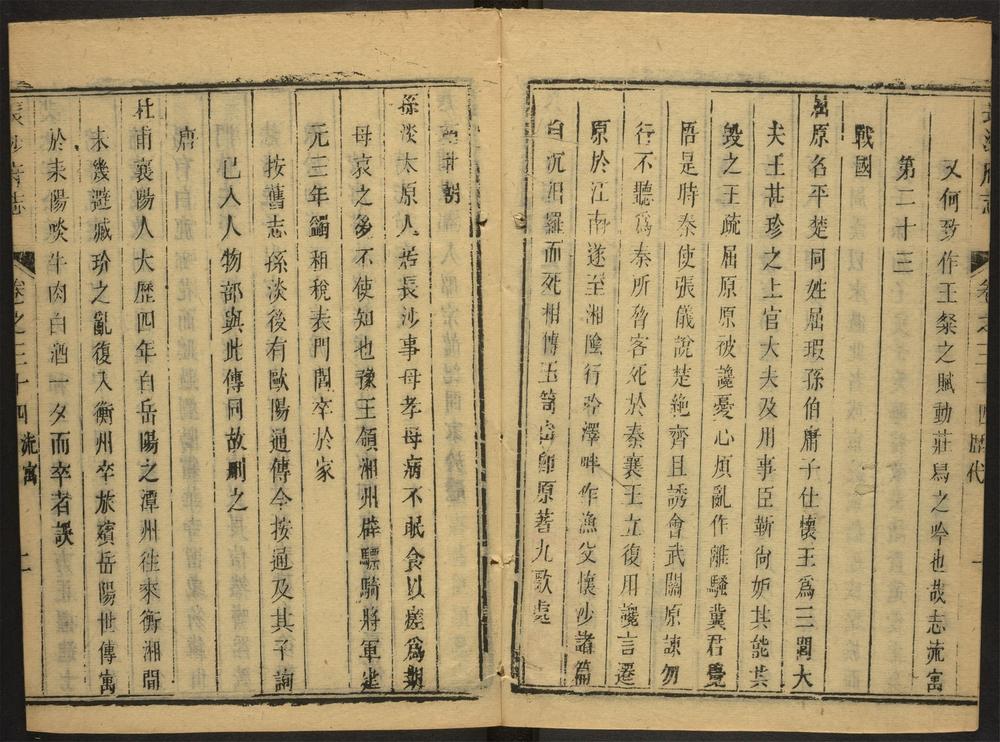 長沙府志 卷之三十四 歷代
又何致作王粲之賦動莊舄之吟也哉志流寓
第二十三
戰國
屈原名平楚同姓屈瑕孫伯庸子仕懷王為三閭大
夫王甚珍之上官大夫及用事臣靳尚妒其能共
毀之王疏屈原原被讒憂心煩亂作離騷冀君覺
悟是時秦使張儀說楚絕齊且誘會武關原諫勿
行不聽為秦所脅客死於秦襄王立復用讒言遷
原於江南遂至湘陰行吟澤畔作漁父懷沙諸篇
自沉汨羅而死相傳玉笥山卽原著九歌處
南朝
孫淡太原人居長沙事母孝母病不眠食以瘥為期
母哀之多不使知也豫王領湘州辟驃騎將軍建
元三年蠲租稅表門閭卒於家
按舊志孫淡後有歐陽通傳今按通及其子詢
已入人物部與此傳同故刪之
唐
杜甫襄陽人大歷四年自岳陽之潭州往來衡湘間
未幾避臧玠之亂復入衡州卒旅殯岳陽世傳寓
於耒陽啖牛肉白酒一夕而卒者誤
長沙府志 卷之三十四 流寓 二